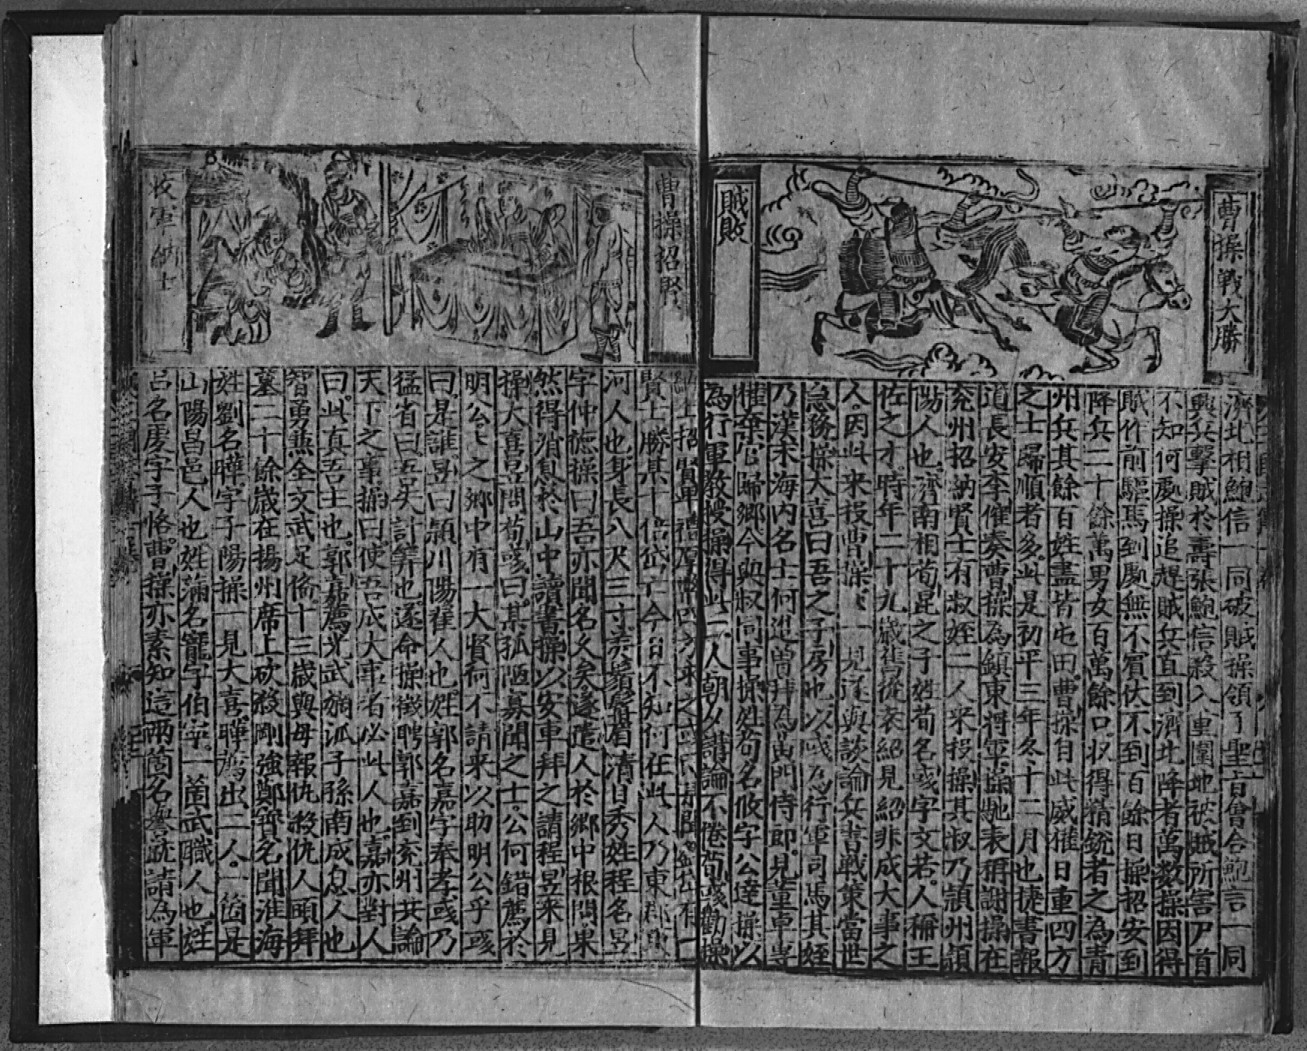 曹操戰大勝
賊敗
濟北相鮑信一同破賊操領了聖旨會合鮑信一同
興兵擊賊於壽張鮑信殺入重圍地被賊所害尸首
不知何處操追趕賊兵直到濟北降者萬數操因得
賊作前驅馬到處無不賓伏不到百餘日操招安到
降兵二十餘萬男女百萬餘口收得精銳者之為青
州兵其餘百姓盡皆屯田曹操自此威權日重四方
之士歸順者多此是初平三年冬十二月也捷書報
道長安李催奏曹操為鎮東將軍操馳表稱謝操在
兖州招納賢士有叔姪二人來投操其叔乃潁州潁
陽人也濟南相荀昆之子姓荀名彧字文若人稱王
佐之才時年二十九歲舊從袁紹見紹非成大事之
人因此來投曹操一見遂與談論兵書戰策當世
急務操大喜曰吾之子房也以彧為行軍司馬其姪
乃漢末海内名士何進曾拜為黄門侍郎見董卓專
權棄官歸鄉今與叔同事操姓荀名攸字公達操以
為行軍教授操得此二人朝夕講論不倦荀彧勸操
曹操招賢
收軍納士
納士招賢
賢士勝某十倍 今日不知何在此人乃東郡
河人也身長八尺三寸美鬚眉清目秀姓程名昱
字仲德操曰吾亦聞名久矣遂遣人於鄉中根問果
然得消息於山中讀書操以安車拜之請程昱來見
操大喜昱問荀彧曰某孤陋寡聞之士公何錯薦於
明公公之鄉中有一大賢何不請來以助明公乎彧
曰是誰昱曰潁川陽翟人也姓郭名嘉字奉孝彧乃
猛省曰吾失計算也遂命操徵聘郭嘉到兖州共論
天下之事操曰使吾成大事者必此人也嘉亦對人
曰此真吾主也郭嘉薦光武嫡派子孫南成息人也
智勇兼全文武足偹十三歲與母報仇殺仇人頭拜
墓二十餘歲在揚州席上砍殺剛強鄭寶名聞淮海
姓劉名曄字子陽操一見大喜曄薦出二人一箇是
山陽昌邑人也姓滿名寵字伯寧一箇武職人也姓
吕名虔字子恪曹操亦素知這兩箇名譽就請為軍